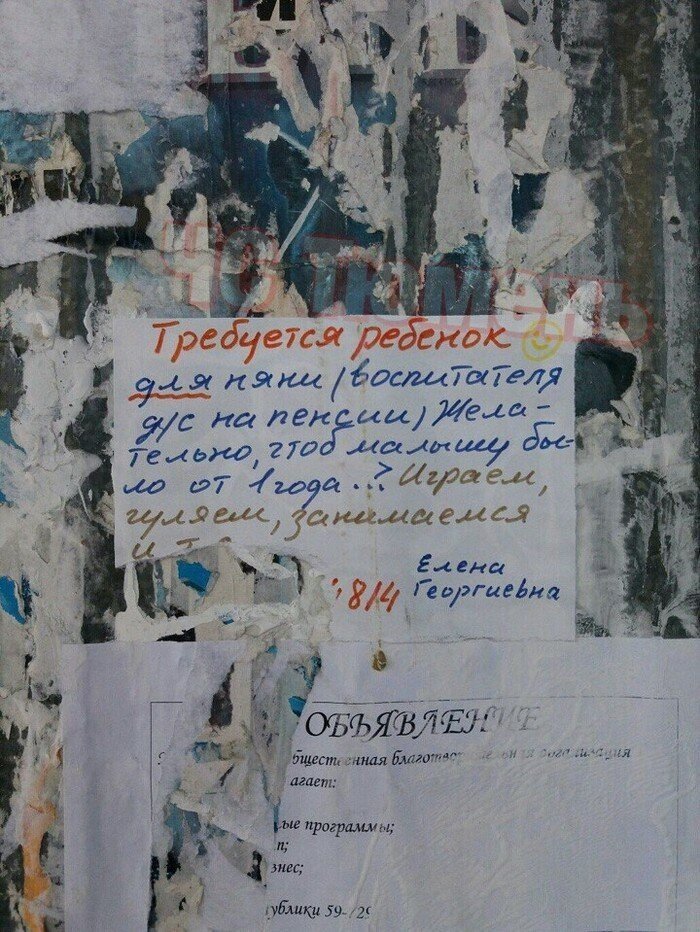 ЧС Тюмень
Требуется ребенок
для няни (воспитателя
д/с на пенсии) Жела-
тельно, чтоб малышу бы-
ло от 1 года...? Играем,
гуляем, занимаемся
и т
Елена
Георгиевна
8/4
ОБЪЯВЛЕНИЕ
бщественная благотворительная организация
агает:
ые программы;
п;
знес;
ублики 59-